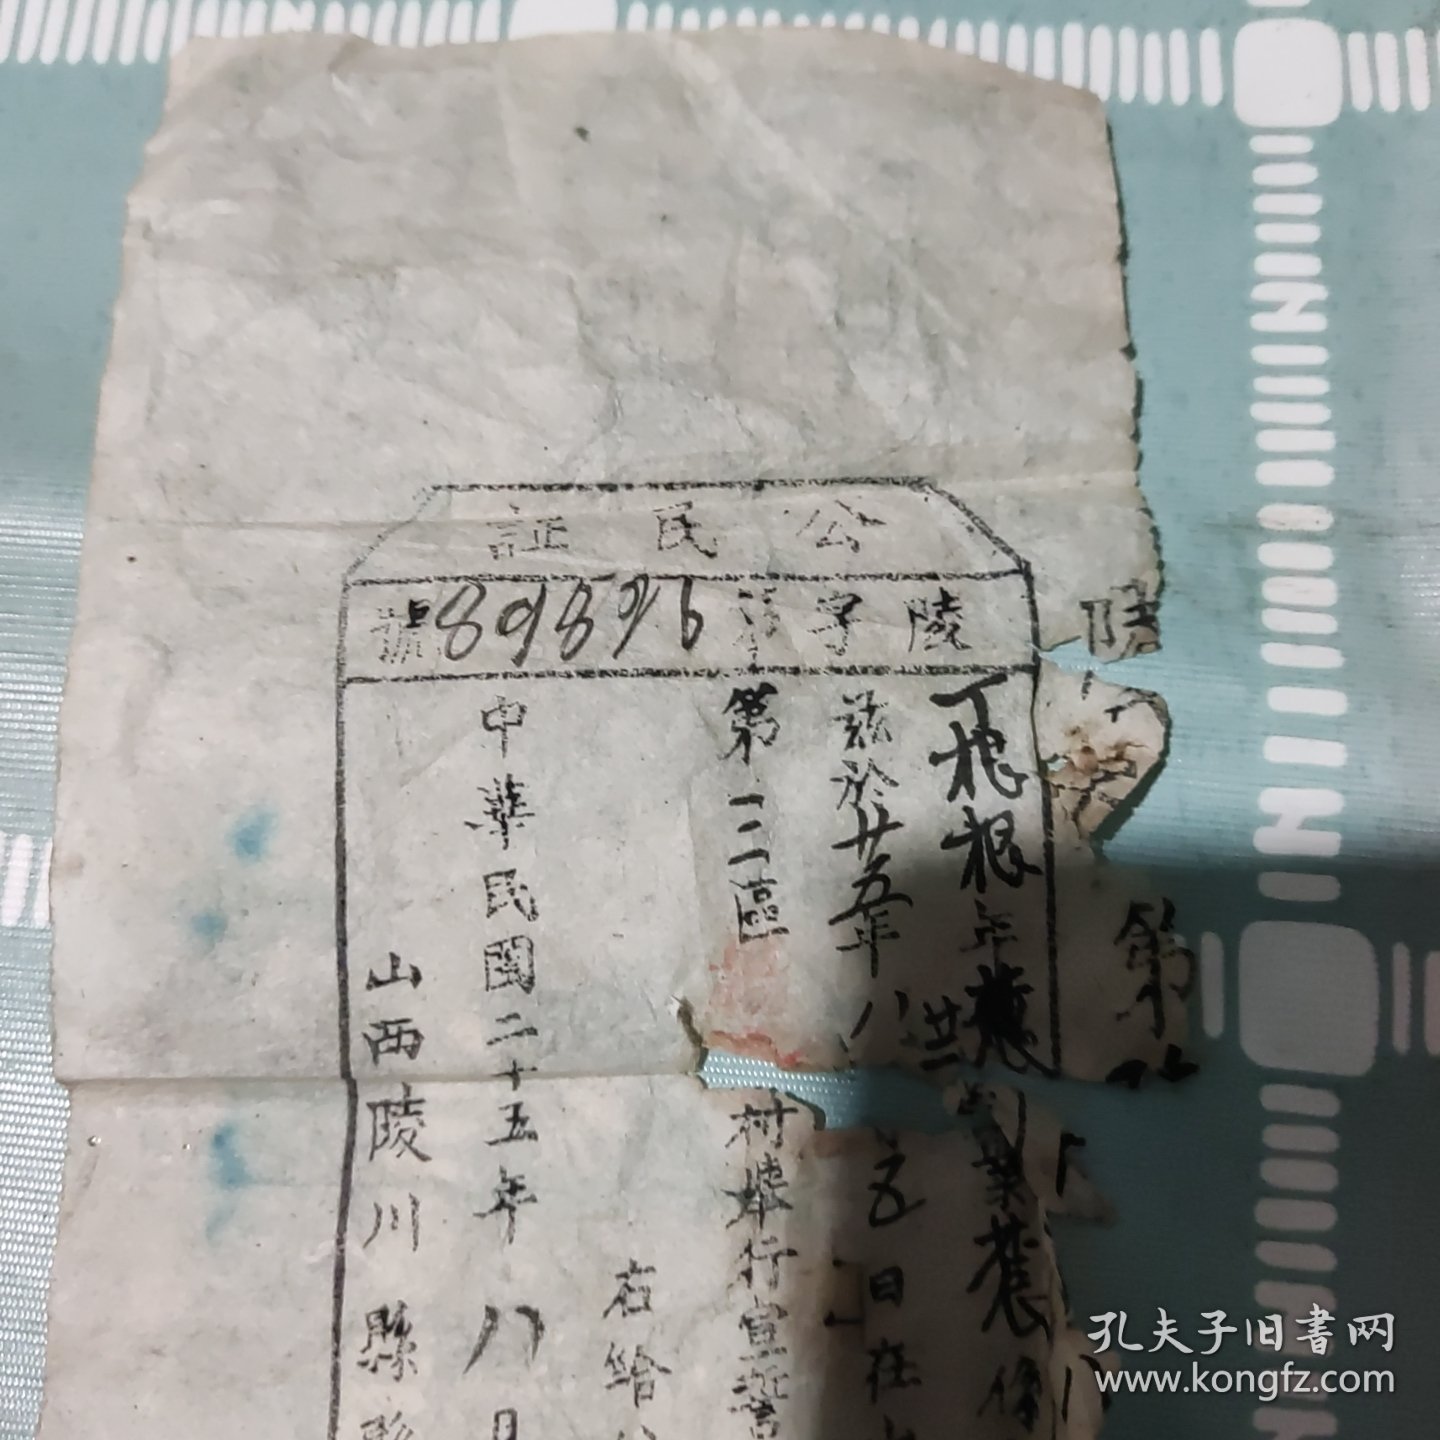 公民証
陵字第89896號
丁槐根年 業農
茲於廿五年八 五日在
第二區 村舉行宣誓
右給
中華民國二十五年八月
山西陵川縣縣
第
孔夫子旧書网
www.kongfz.com